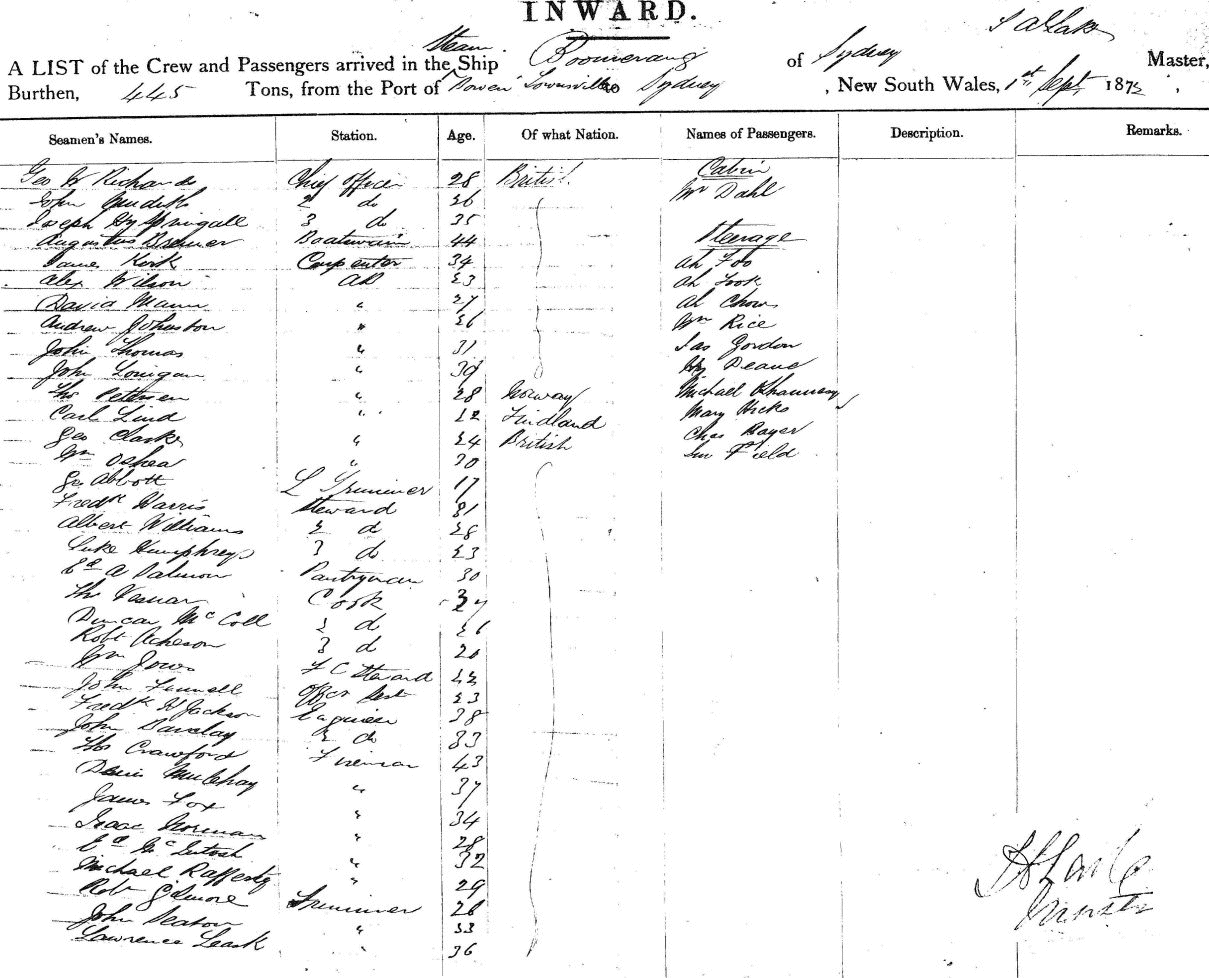 INWARD.
Steam
A LIST of the Crew and Passengers arrived in the Ship Boomerang of Sydney Master,
Burthen, 445 Tons, from the Port of Bowen Townsville to Sydney , New South Wales, 1st Sept 187 ,
Seamen's Names. Station. Age. Of what Nation. Names of Passengers. Description. Remarks.
Geo W Richards Chief Officer 28 British Cabin
John 2 do 26 Mr Dahl
Joseph Hy Springall 3 do 35
Augustus Bremer Boatswain 44 Steerage
James Kirk Carpenter 34 Ah Foo
Alex Wilson AB 23 Ah Fook
David Mann " 27 Ah Chow
Andrew Johnston " 26 Wm Rice
John Thomas " 31 Jas Gordon
John Lonigan " 39 Hy Deane
Thos Petersen " 28 Norway Michael
Carl Lind " Findland Mary Hicks
Geo Clarke " 24 British Chas Bayer
Wm Oshea " 30 Field
Geo Abbott L Trimmer 17
Fredk Harris Steward 31
Albert Williams 2 do 28
Luke Humphreys 3 do 23
Ed A Salmon Pantryman 30
Thos Cook
Duncan McColl 2 do 26
Robt Acheson 3 do 20
Wm Jones F C Steward 22
John Fennell 23
Fredk H Jackson Engineer 38
John Barclay 2 do 33
Thos Crawford Fireman 43
" 37
James Fox " 34
Isaac Norman " 28
Ed McIntosh " 32
Michael Rafferty " 29
Robt Gilmore Trimmer 26
John Seaton " 33
Lawrence Leask " 36
Master